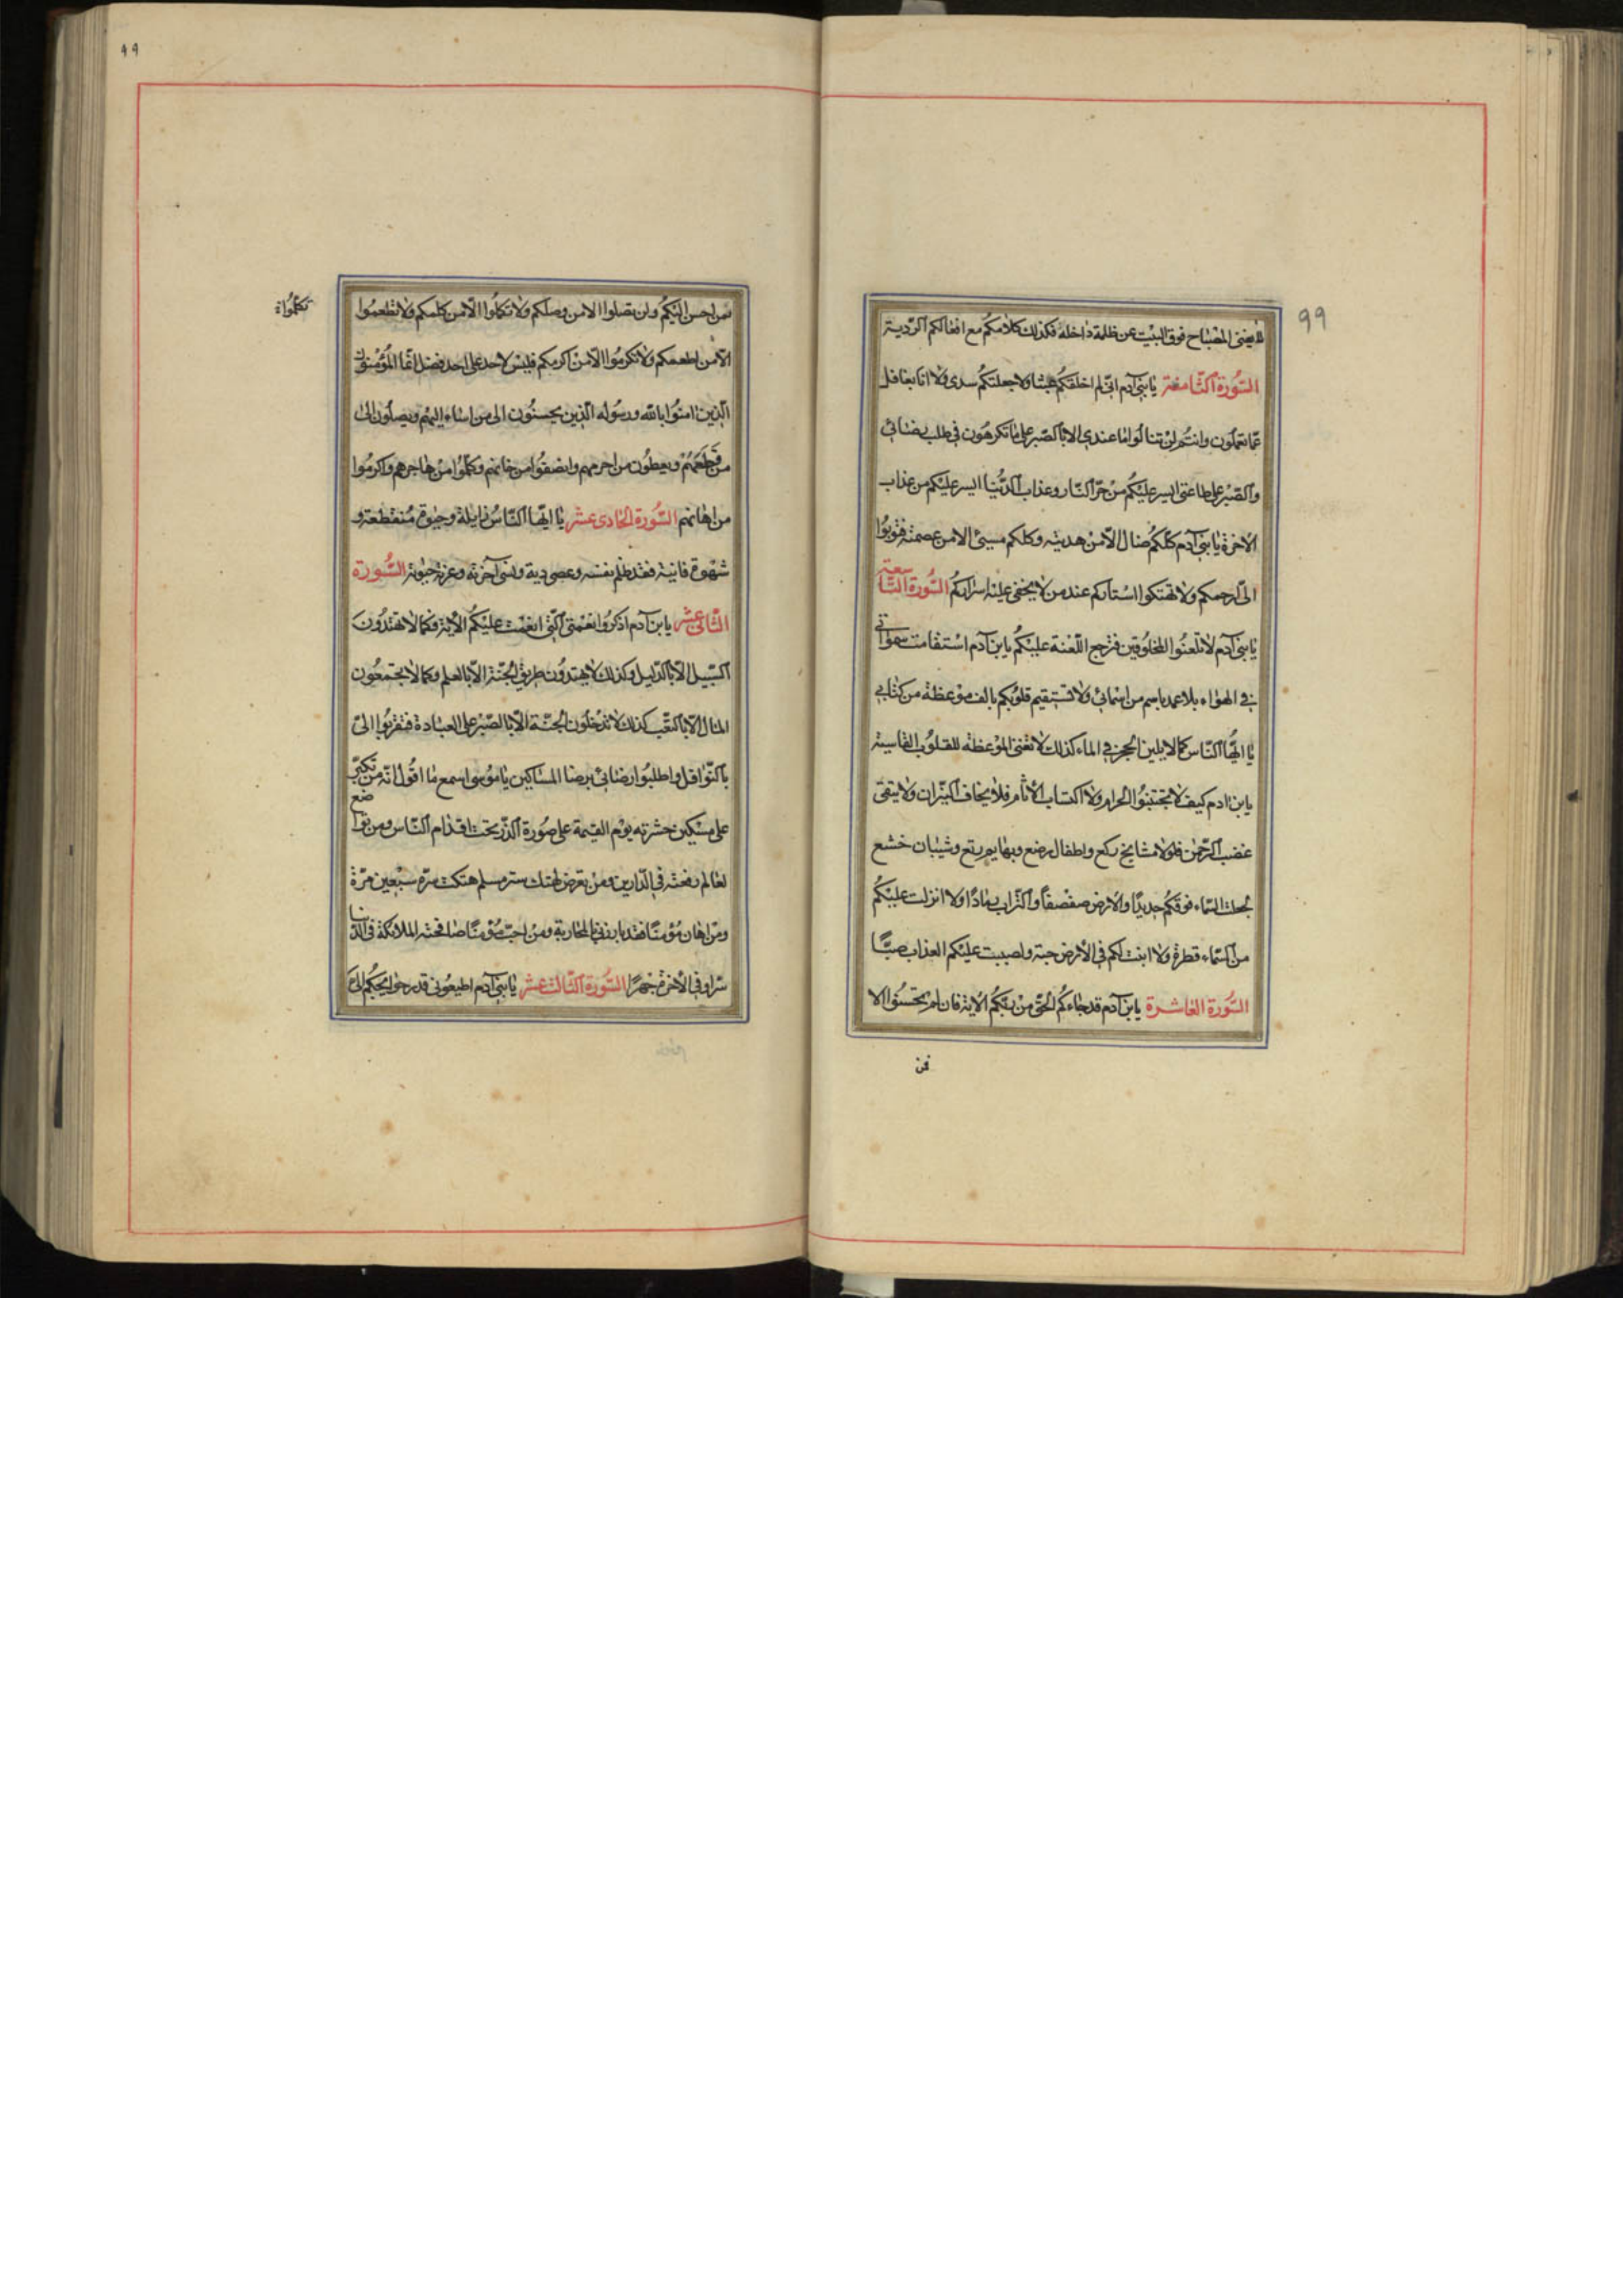 99
لا يغنى المصباح فوق البيت عن ظلمة داخله فكذلك كلامكم مع افعالكم الردية
السورة الثامنة يا بنى آدم انى لم اخلقكم عبثا ولا جعلتكم سدى ولا انا بغافل
عما تعملون وانتم لن تنالوا ما عندى الا بالصبر على ما تكرهون فى طلب رضائى
والصبر على طاعتى ايسر عليكم من حر النار وعذاب الدنيا ايسر عليكم من عذاب
الاخرة يا بنى آدم كلكم ضال الا من هديته وكلكم مسيئ الا من عصمته فتوبوا
الى ارحمكم ولا تهتكوا استاركم عند من لا يخفى عليه اسراركم السورة التاسعة
يا بنى آدم لا تلعنوا المخلوقين فترجع اللعنة عليكم يابن آدم استقامت سمواتى
فى الهواء بلا عمد باسم من اسمائى ولا تستقيم قلوبكم بالف موعظة من كتابى
يا ايها الناس كما لا يلين الحجر فى الماء كذلك لا تغنى الموعظة للقلوب القاسية
يابن ادم كيف لا تجتنبوا الحرام ولا اكتساب الأثام فلا يخاف النيران ولا يتقى
غضب الرحمن فلولا مشايخ ركع واطفال رضع وبهايم رتع وشبان خشع
لجعلت السماء فوقكم حديدا والأرض صفصفا والتراب رمادا ولا انزلت عليكم
من السماء قطرة ولا انبت لكم فى الأرض حبة ولصببت عليكم العذاب صبا
السورة العاشرة يابن آدم قد جاءكم الحق من ربكم الاية فان لم تحسنوا الا
فن
٩٩
لمن احسن اليكم ولن تصلوا الا من وصلكم ولا تكلموا الا من كلمكم ولا تطعموا
تكلموا
الا من اطعمكم ولا تكرموا الا من اكرمكم فليس لاحد على احد فضل انما المؤمنون
الذين امنوا بالله ورسوله الذين يحسنون الى من اساء اليهم ويصلون الى
من قطعهم ويعطون من احرمهم وانصفوا من خانهم وكلموا من هاجرهم واكرموا
من اهانهم السورة الحادى عشر يا ايها الناس زايلة وحيوة منقطعة و
شهوة فانية فقد ظلم نفسه وعصى ربه ونسى آخرته وغرته حيوته السورة
الثانى عشر يابن آدم اذكروا نعمتى التى انعمت عليكم الاية فكما لا تهتدون
السبيل الا بالدليل وكذلك لا يهتدون طريق الجنة الا بالعلم وكما لا يجتمعون
المال الا بالتعب كذلك لا تدخلون الجنة الا بالصبر على العبادة فتقربوا الى
بالنوافل واطلبوا رضائى برضا المساكين يا موسى اسمع ما اقول انه من تكبر
على مسكين حشرته يوم القيمة على صورة الذر تحت اقدام الناس ومن تواضع
لعالم رفعته فى الدارين ومن تعرض لهتك ستر مسلم هتكت ستره سبعين مرة
ومن اهان مؤمنا فقد بارزنى بالمحاربة ومن احب مؤمنا صافحته الملائكة فى الدنيا
سرا وفى الأخرة جهرا السورة الثالث عشر يا بنى آدم اطيعونى قدر حوايجكم الى